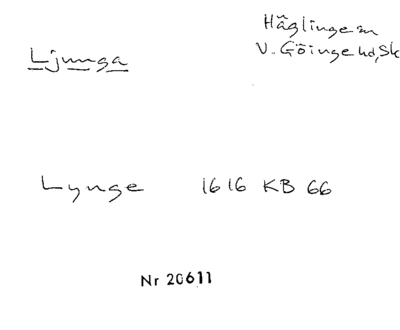 Ljunga
Häglinge sn
V. Göinge hd, Sk
Lynge 1616 KB 66
Nr 20611